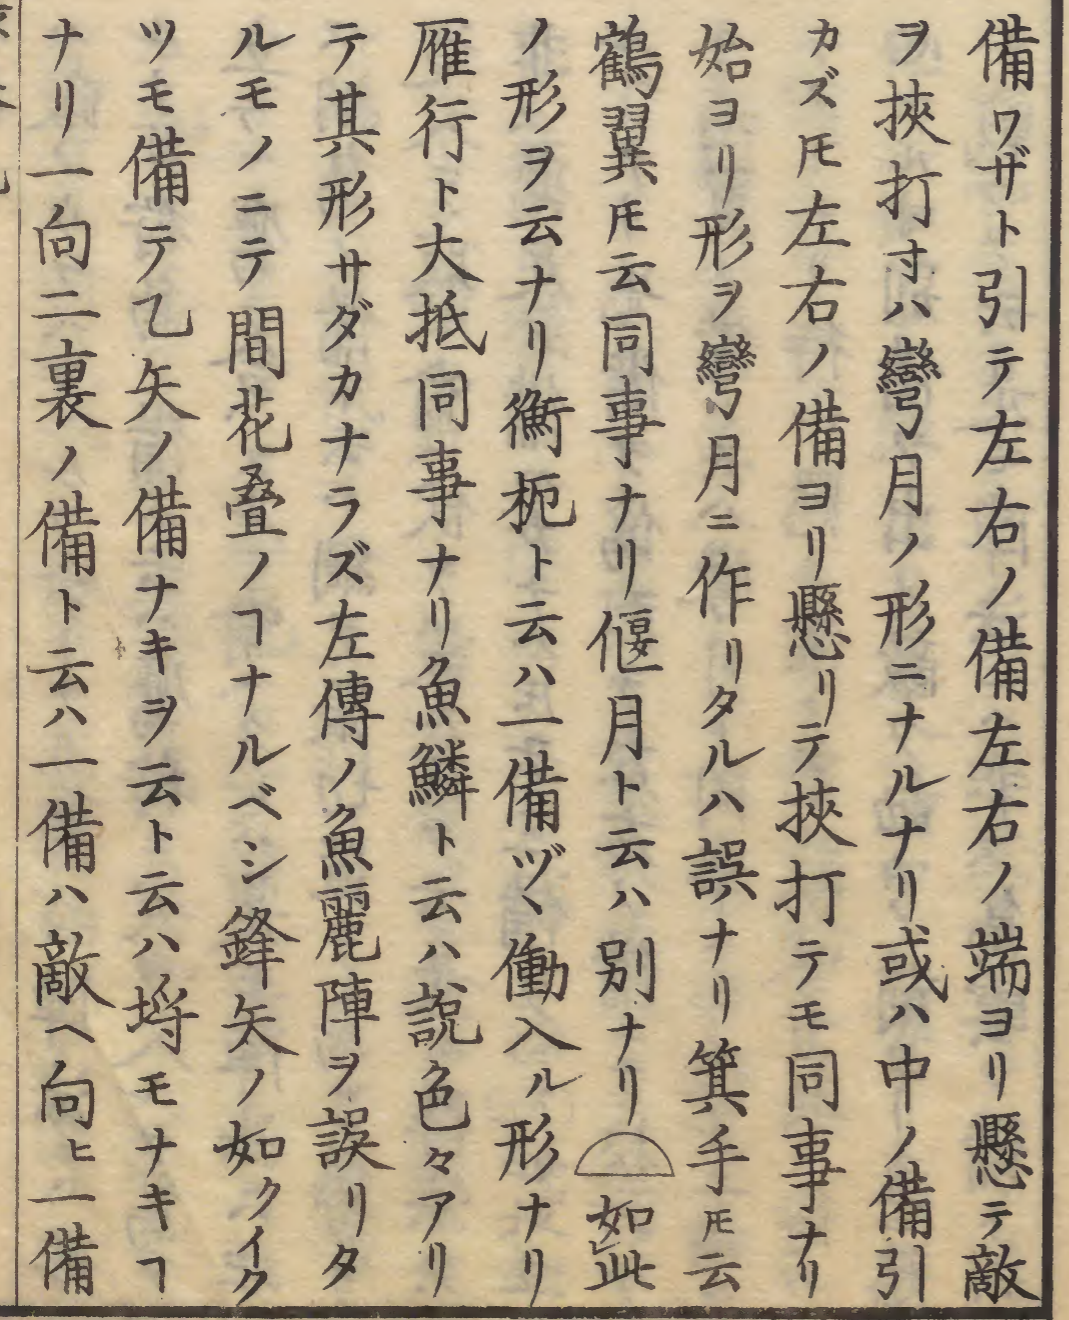 備ワザト引テ左右ノ備左右ノ端ヨリ懸テ敵
ヲ挾打寸ハ彎月ノ形ニナルナリ或ハ中ノ備引
カズ𪜈左右ノ備ヨリ懸リテ挾打テモ同事ナリ
始ヨリ形ヲ彎月ニ作リタルハ誤ナリ箕手𪜈云
鶴翼𪜈云同事ナリ偃月ト云ハ別ナリ如此
ノ形ヲ云ナリ衡軛ト云ハ一備ヅヽ働入ル形ナリ
雁行ト大抵同事ナリ魚鱗ト云ハ説色々アリ
テ其形サダカナラズ左傳ノ魚麗陣ヲ誤リタ
ルモノニテ間花疊ノヿナルベシ鋒矢ノ如クイク
ツモ備テ乙矢ノ備ナキヲ云ト云ハ埒モナキヿ
ナリ一向二裏ノ備ト云ハ一備ハ敵ヘ向ヒ一備